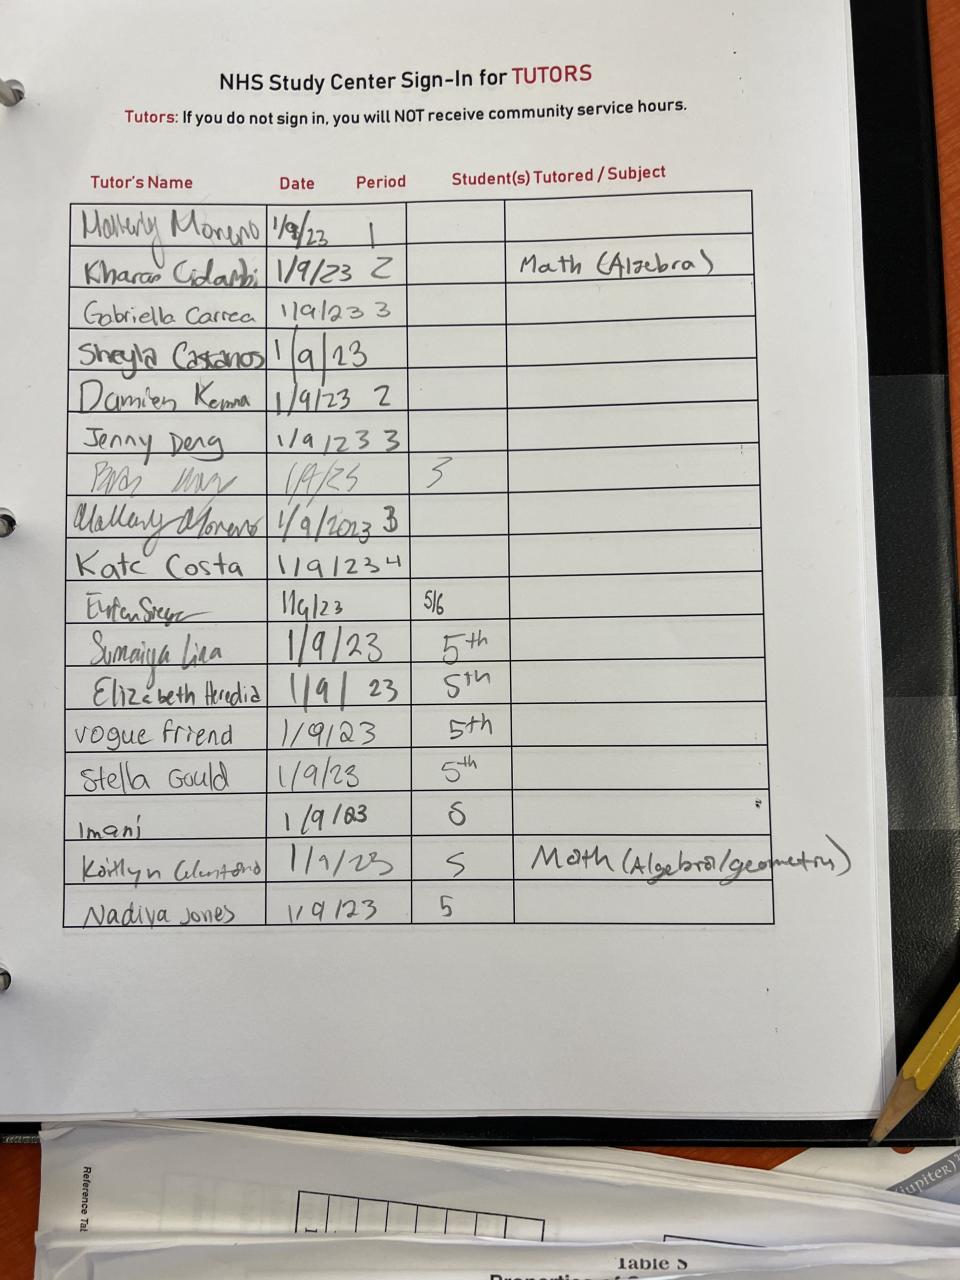 NHS Study Center Sign-In for TUTORS
Tutors: If you do not sign in, you will NOT receive community service hours.
Tutor's Name Date Period Student(s) Tutored / Subject
Mallerly Moreno 1/9/23 1
Kharan Cidambi 1/9/23 2 Math (Algebra)
Gabriella Carrea 1/9/23 3
Sheyla Castanos 1/9/23
Damien Kemna 1/9/23 2
Jenny Deng 1/9/23 3
1/9/23 3
Mallerly Moreno 1/9/2023 3
Kate Costa 1/9/23 4
1/9/23 5/6
Sumaiya Lira 1/9/23 5th
Elizabeth Heredia 1/9/23 5th
vogue friend 1/9/23 5th
Stella Gould 1/9/23 5th
Imani 1/9/23 5
Kaitlyn 1/9/23 5 Math (Algebra/geometry)
Nadiya Jones 1/9/23 5
Reference Tab
(JUPITER)
Table S